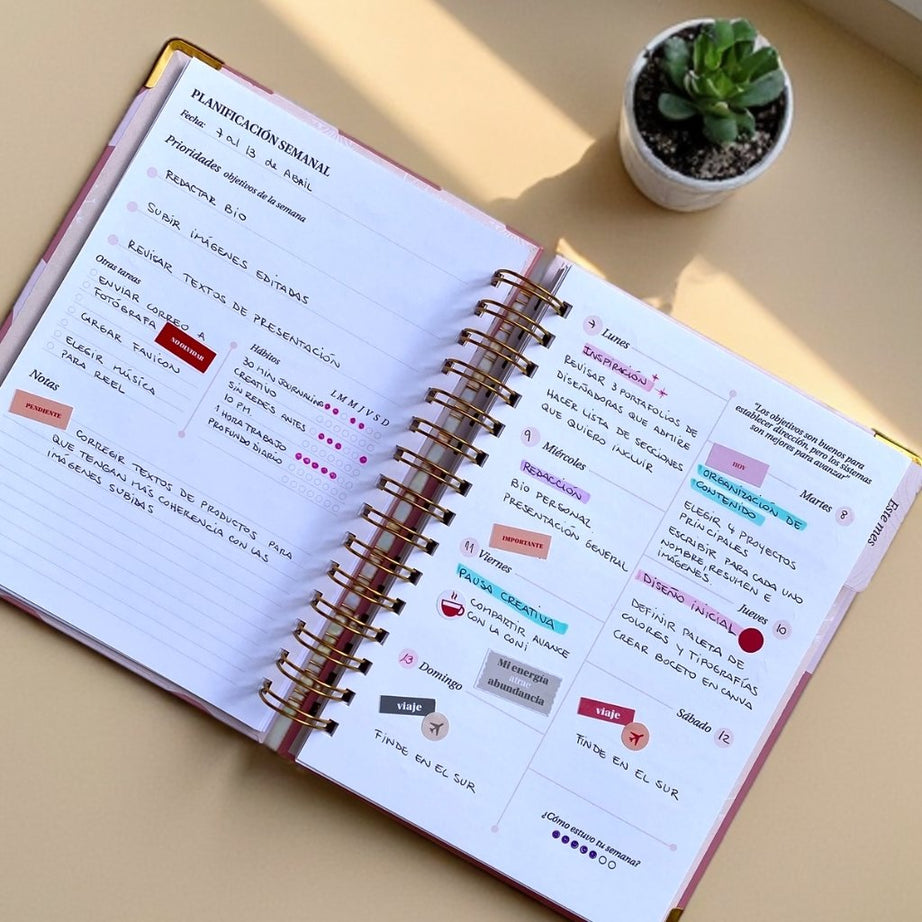 PLANIFICACIÓN SEMANAL
Fecha: 7 al 13 de ABRIL
Prioridades objetivos de la semana
REDACTAR BIO
SUBIR IMÁGENES EDITADAS
REVISAR TEXTOS DE PRESENTACIÓN
Otras tareas
ENVIAR CORREO A
FOTÓGRAFA
NO OLVIDAR
CREAR FAVICON
ELEGIR MÚSICA
PARA REEL
Hábitos
L M M J V S D
30 MIN JOURNALING
CREATIVO
SIN REDES ANTES
10 PM
1 HORA TRABAJO
PROFUNDO DIARIO
Notas
PENDIENTE
CORREGIR TEXTOS DE PRODUCTOS PARA
QUE TENGAN MÁS COHERENCIA CON LAS
IMÁGENES SUBIDAS
7 Lunes
INSPIRACIÓN
REVISAR 3 PORTAFOLIOS DE
DISEÑADORAS QUE ADMIRE
HACER LISTA DE SECCIONES
QUE QUIERO INCLUIR
"Los objetivos son buenos para
establecer dirección, pero los sistemas
son mejores para avanzar"
HOY
Martes 8
ORGANIZACIÓN DE
CONTENIDO
ELEGIR 4 PROYECTOS
PRINCIPALES
ESCRIBIR PARA CADA UNO
NOMBRE, RESUMEN E
IMÁGENES.
9 Miércoles
REDACCIÓN
BIO PERSONAL
PRESENTACIÓN GENERAL
IMPORTANTE
Jueves 10
DISEÑO INICIAL
DEFINIR PALETA DE
COLORES Y TIPOGRAFÍAS
CREAR BOCETO EN CANVA
11 Viernes
PAUSA CREATIVA
COMPARTIR AVANCE
CON LA CONI
Mi energía
atrae
abundancia
Sábado 12
viaje
FINDE EN EL SUR
13 Domingo
viaje
FINDE EN EL SUR
¿Cómo estuvo tu semana?
Este mes